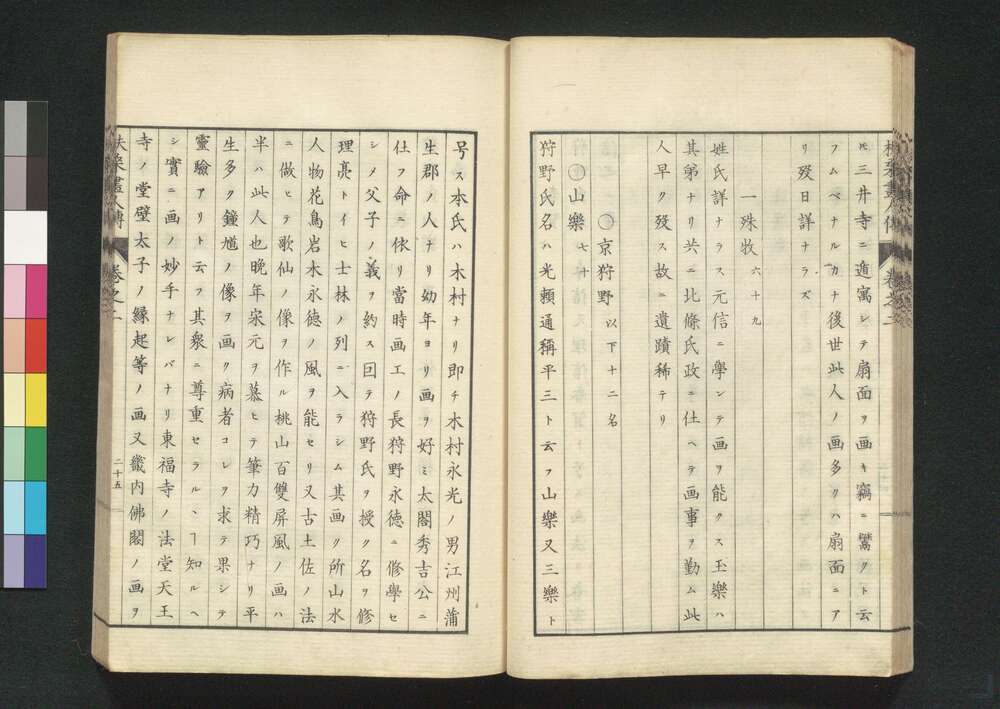 ル三井寺ニ遁寓シテ扇面ヲ画キ竊ニ鬻クト云
フムベナルカナ後世此人ノ画多クハ扇面ニア
リ歿日詳ナラズ
一殊牧六十九
姓氏詳ナラス元信ニ學ンテ画ヲ能クス玉樂ハ
其弟ナリ共ニ北條氏政ニ仕ヘテ画事ヲ勤ム此
人早ク歿ス故ニ遺蹟稀テリ
〇京狩野以下十二名
〇山樂七十
狩野氏名ハ光頼通稱平三ト云フ山樂又三樂ト
号ス本氏ハ木村ナリ即チ木村永光ノ男江州蒲
生郡ノ人ナリ幼年ヨリ画ヲ好ミ太閤秀吉公ニ
仕フ命ニ依リ當時画工ノ長狩野永徳ニ修學セ
シメ父子ノ義ヲ約ス回テ狩野氏ヲ授ク名ヲ修
理亮トイヒ士林ノ列ニ入ラシム其画ク所山水
人物花鳥岩木永徳ノ風ヲ能セリ又古土佐ノ法
ニ倣ヒテ歌仙ノ像ヲ作ル桃山百雙屏風ノ画ハ
半ハ此人也晩年宋元ヲ慕ヒテ筆力精巧ナリ平
生多ク鐘馗ノ像ヲ画ク病者コレヲ求テ果シテ
靈驗アリト云フ其衆ニ尊重セラルヽヿ知ルヘ
シ實ニ画ノ妙手ナレバナリ東福寺ノ法堂天王
寺ノ堂壁太子ノ縁起等ノ画又畿内佛閣ノ画ヲ
扶桑畫人傳
卷之二
二十五